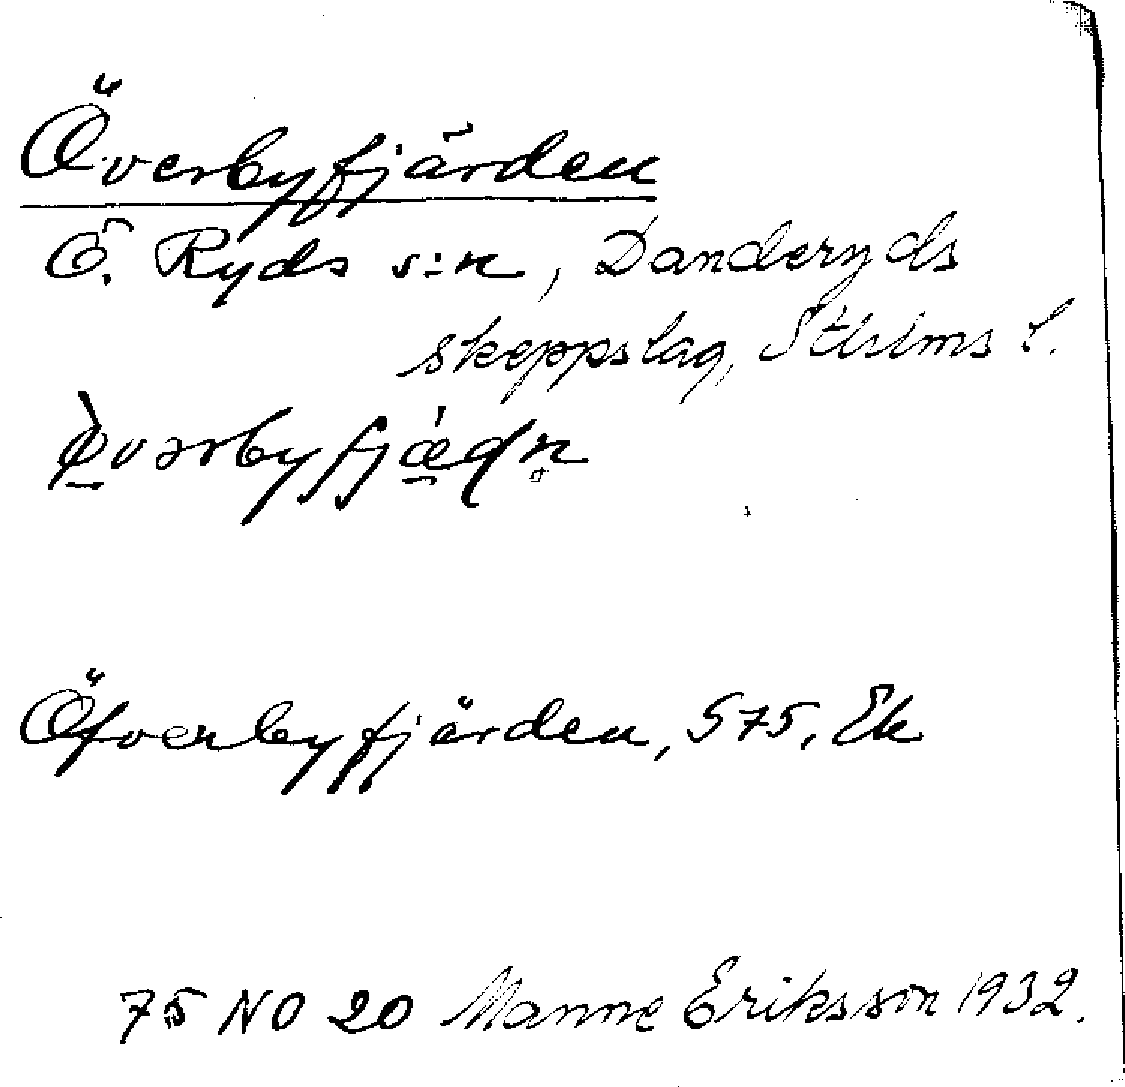 Överbyfjärden
Ö. Ryds s:n, Danderyds
skeppslag, Sthlms l.
Öfverbyfjärden, S75, Ek
75 NO 20 Manne Eriksson 1932.